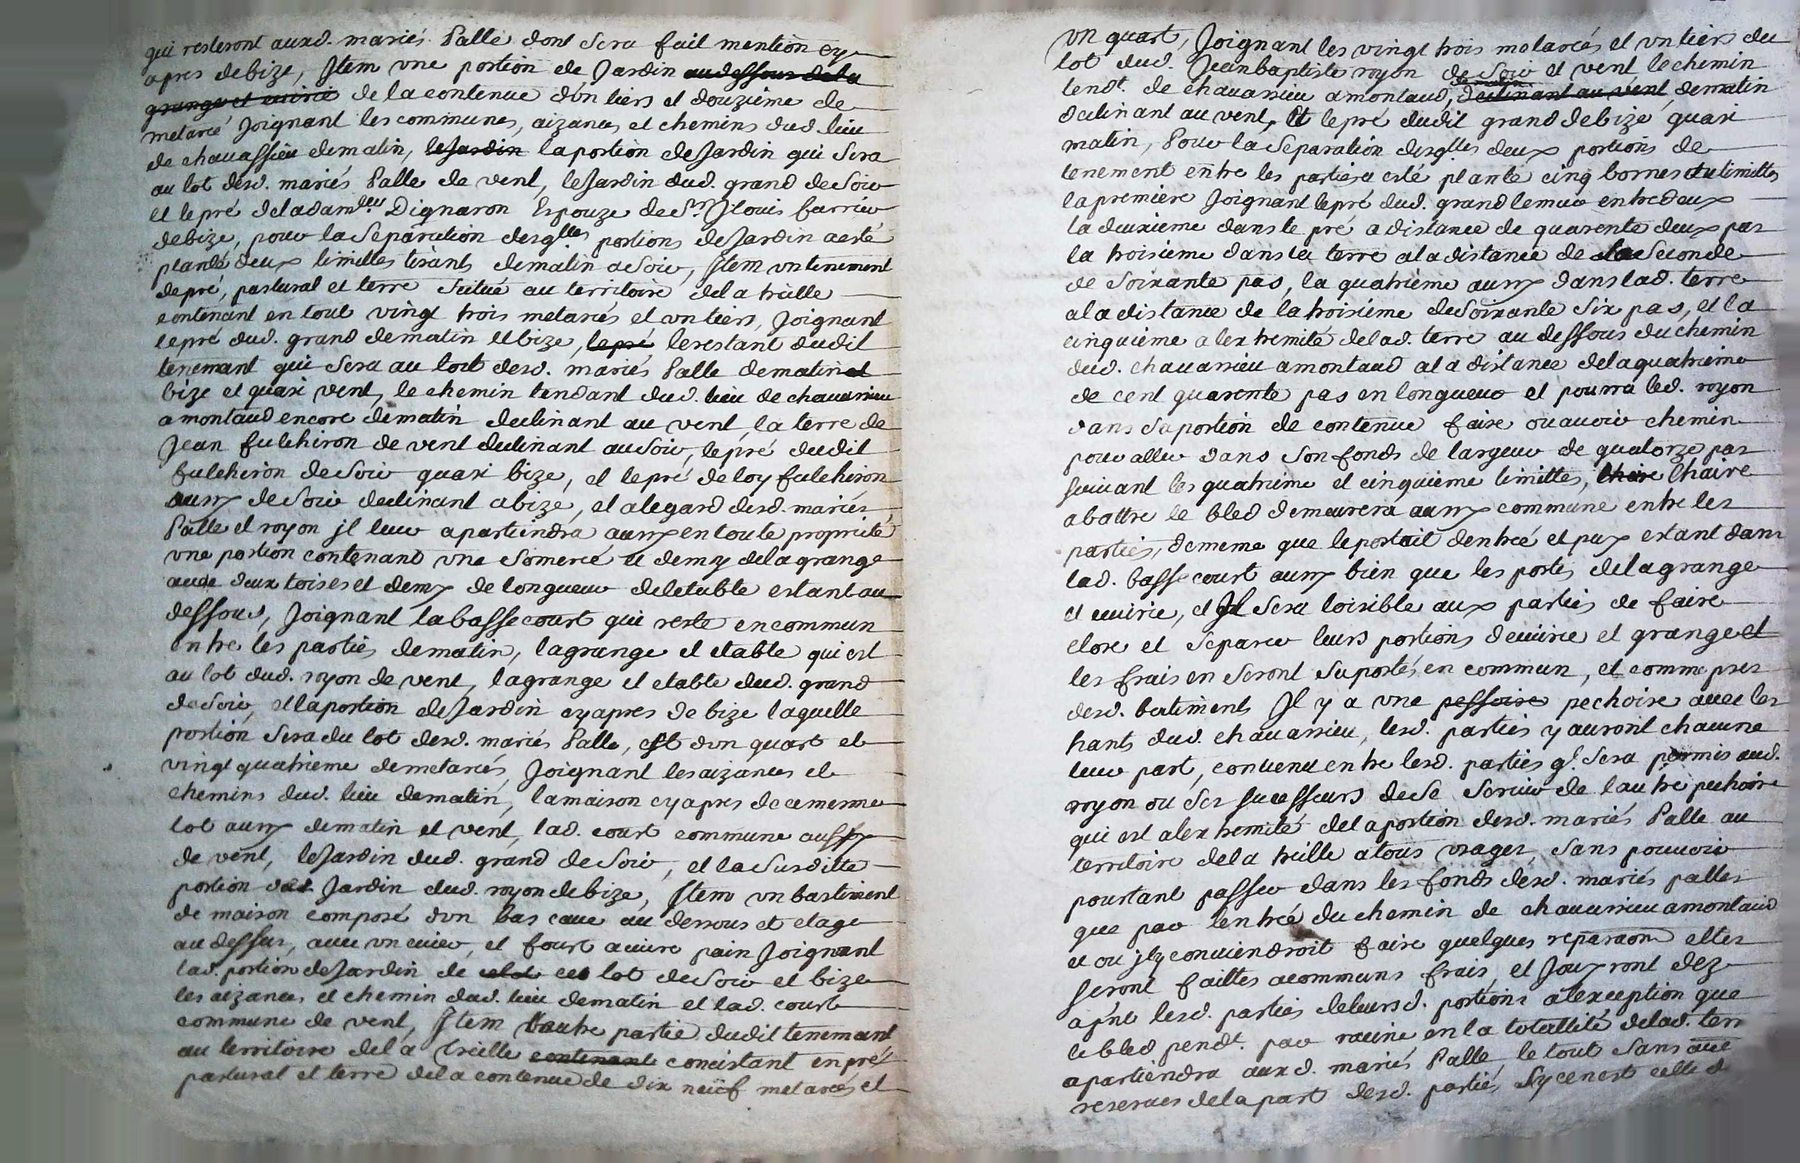 qui resteront auxd. mariés Palle dont sera fait mention cy
apres debize, Item une portion de Jardin au dessous dela
grange et cuirie de la contenue d'un tiers et douzième de
metarcé Joignant les communes, aizances et chemins dud. lieu
de chauassieu dematin, leJardin laportion deJardin qui sera
au lot desd. mariés Palle de vent, leJardin dud. grand deSoir
et le pré deladamlle Dignaron Espouze de Sr. Jlouis farrieu
debize, pour laSeparation desqlles portions deJardin aesté
planté deux limittes tirants dematin aSoir, Item untenement
depré, pastural et terre situé au territoire dela treille
contenant en tout vingt trois metarcés et untiers, Joignant
lepré dud. grand dematin et bize, lepré lerestant dudit
tenemant qui sera au lot desd. mariés Palle dematin et
bize et quasi vent, le chemin tendant dud. lieu de chauassieu
amontaud encore dematin declinant au vent, la terre de
Jean fulchiron de vent declinant auSoir, lepré dudit
fulchiron deSoir quasi bize, et lepré deloy fulchiron
aussy deSoir declinant abize, et alegard desd. mariés
Palle et royon jl leur apartiendra aussy entoute propriété
une portion contenant une Somerée et demy dela grange
deux toises et demy de longueur deletable estant au
dessous, Joignant labassecourt qui reste encommun
entre les parties dematin, lagrange et etable qui est
au lot dud. royon de vent, lagrange et etable dud. grand
deSoir, et laportion deJardin cyapres de bize laquelle
portion sera du lot desd. mariés Palle, est d'un quart et
vingt quatrième demetarcés, Joignant lesaizances et
chemins dud. lieu dematin, lamaison cyapres decememe
lot aussy dematin et vent, lad. court commune aussy
de vent, leJardin dud. grand deSoir, et laSusditte
portion de Jardin dud. royon debize, Item un bastiment
de maison composé d'un bas caue au dessous et etage
au dessus, auec un euier, et fourt acuire pain Joignant
lad. portion deJardin de ce lot deSoir et bize
les aizances et chemin dud. lieu dematin et lad. court
commune de vent, Item lautre partie dudit tenemant
au territoire dela treille contenant concistant enpré
pastural et terre dela contenue de dix neuf metarcés et
un quart, Joignant les vingt trois metarcés et untiers du
lot dud. Jeanbaptiste royon de Soir et vent, le chemin
tendt. de chauassieu amontaud, declinant au vent dematin
declinant au vent, et lepré dudit grand debize quasi
matin, Pour la Séparation desqlles deux portions de
tenement entre les parties a esté planté cinq bornes ou limittes
lapremière Joignant lepré dud. grand lemur entredeux
la deuxième dans le pré a distance de quarente deux pas
la troisième dans la terre ala distance de la Seconde
de Soixante pas, la quatrième aussy dans lad. terre
ala distance de latroisième deSoixante six pas, et la
cinquième alextremité delad. terre au dessous duchemin
dud. chauassieu amontaud ala distance delaquatrième
de cent quarente pas en longueur et pourra led. royon
dans saportion de contenue faire ouauoir chemin
pour aller dans son fonds de largeur de quatorze pas
suiuant les quatrième et cinquième limittes, laire
abattre le bled demeurera aussy commune entre les
parties, dememe que leportait dentrée et puy estant dans
lad. basse court aussy bien que les portes delagrange
et cuirie, et Jl sera loisible aux parties de faire
clore et separer leurs portions decuirie et grange et
les frais en seront suportés en commun, et comme pres
desd. batiments Jl y a une pessoire pechoire auec les
hants dud. chauassieu, lesd. parties y auront chacune
leur part, conuenu entre lesd. parties q'. sera permis aud.
royon ou ses successeurs dese seruir de lautre pechoire
qui est alextremité delaportion desd. mariés Palle au
territoire dela treille atous usages, sans pouuoir
pourtant passer dans les fonds desd. mariés palles
que par lentrée duchemin de chauassieu amontaud
et ou jl y conuiendroit faire quelques reparaon elles
seront faittes acommuns frais, et Jouyront dez
apnt. lesd. parties deleursd. portions alexception que
le bled pendt. par racine en la totalitté delad. terre
apartiendra auxd. mariés Palle le tout sans autre
reserues dela part desd. parties, sy cenest celle d